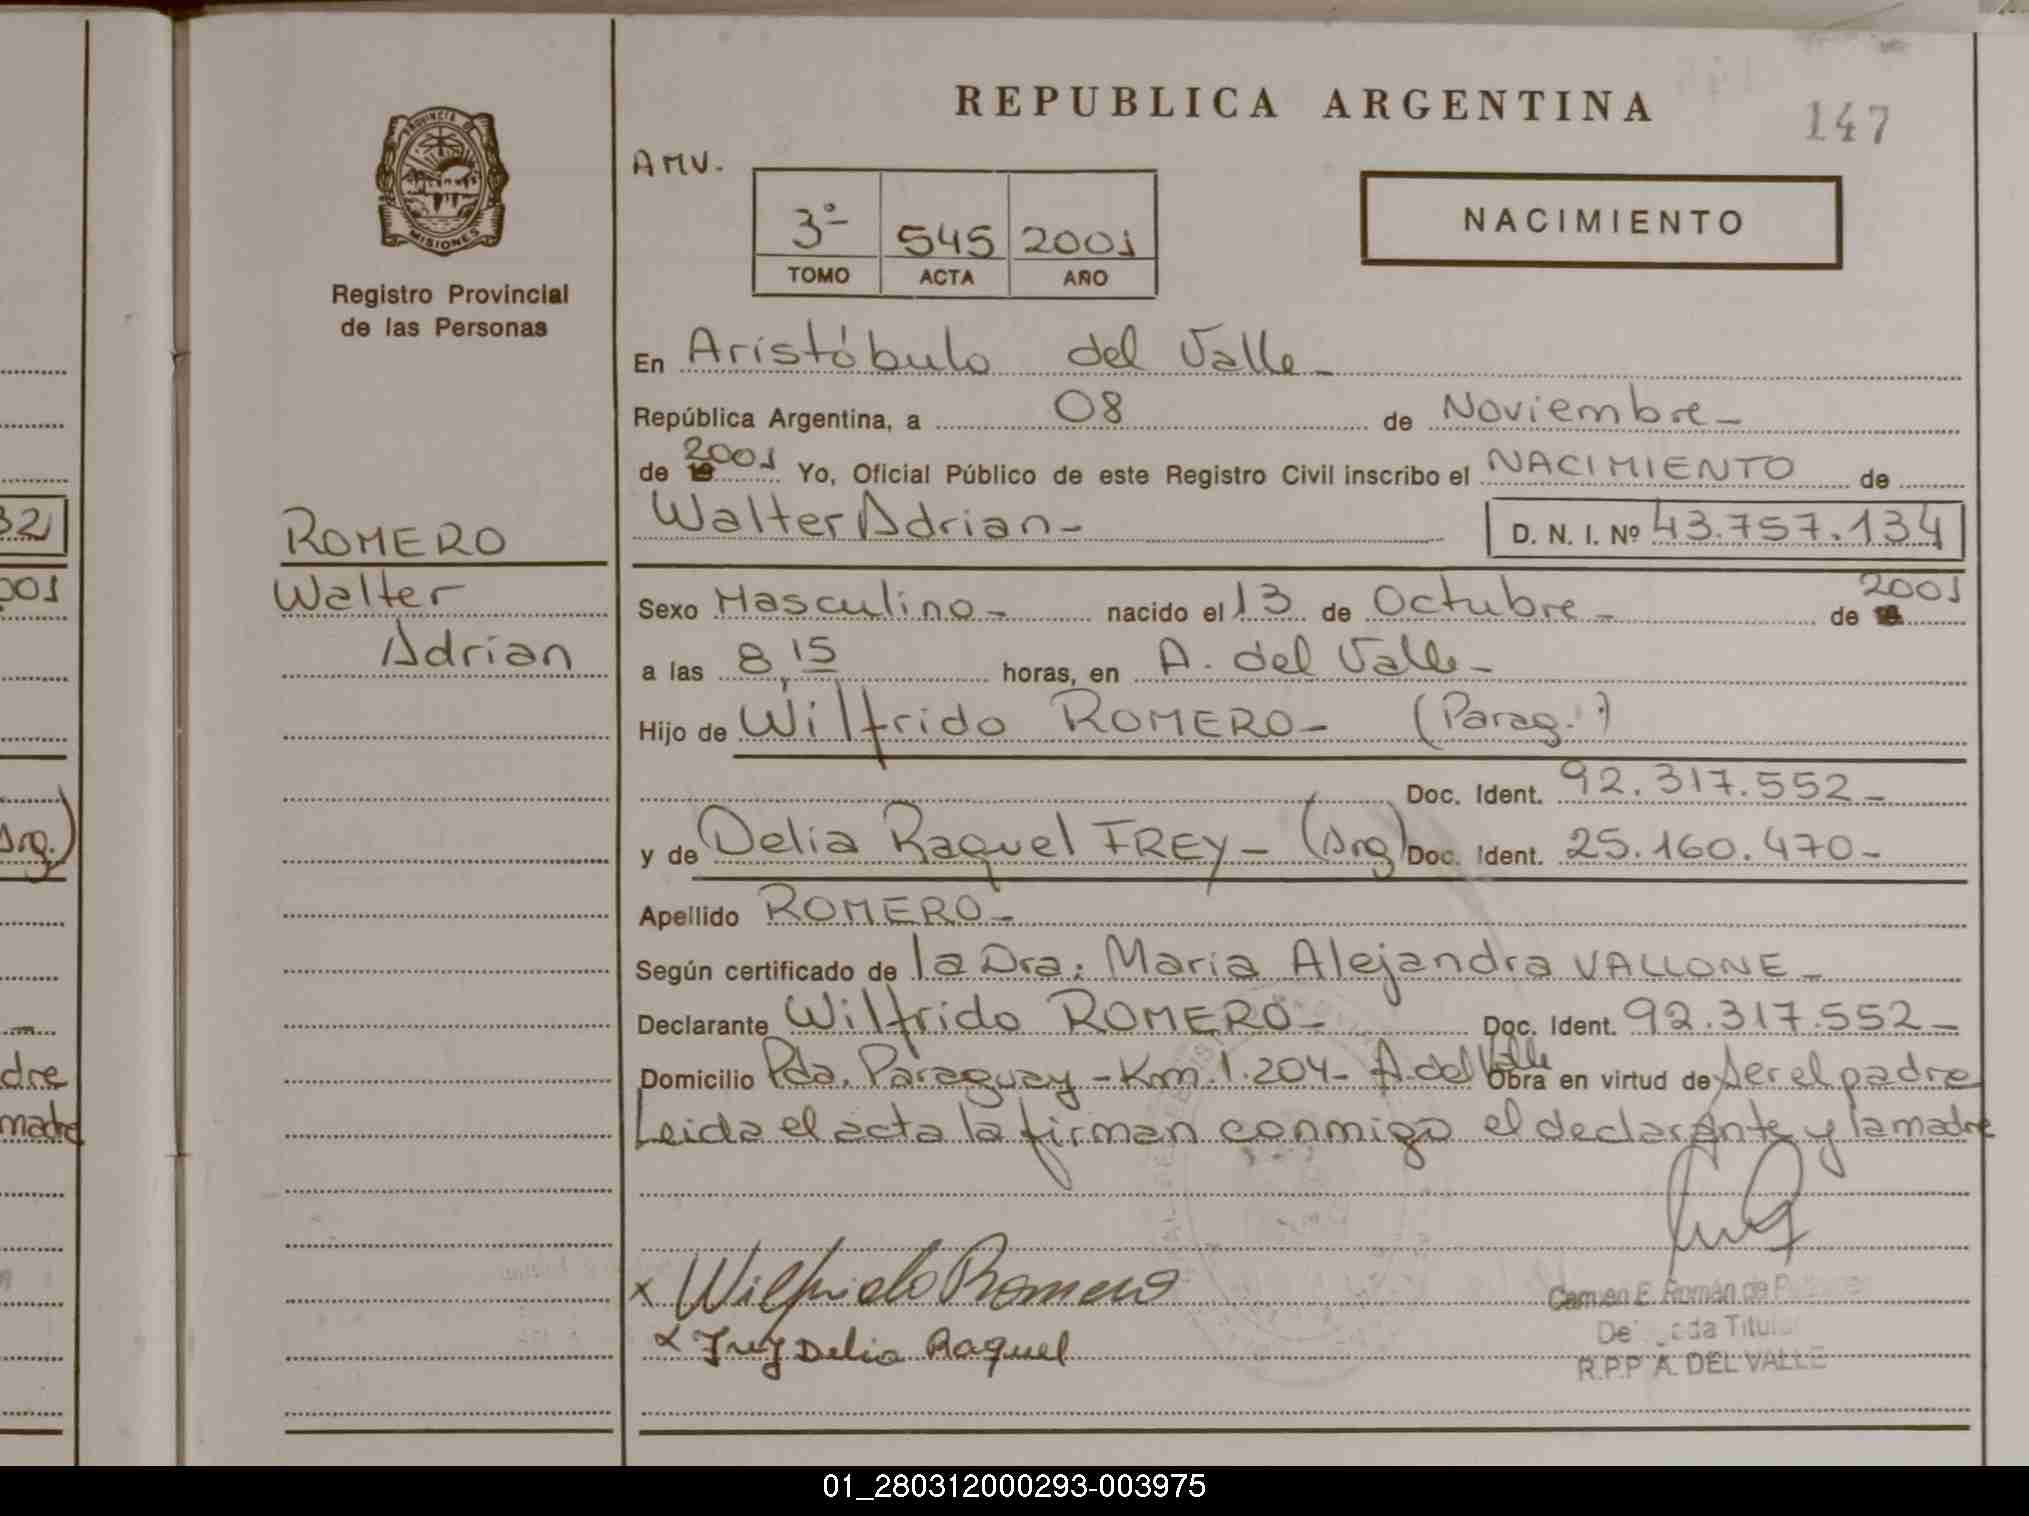 REPUBLICA ARGENTINA
147
PROVINCIA DE
MISIONES
Registro Provincial
de las Personas
AMV.
3º 545 2001
TOMO ACTA AÑO
NACIMIENTO
En Aristóbulo del Valle -
República Argentina, a 08 de Noviembre -
de 2001 Yo, Oficial Público de este Registro Civil inscribo el NACIMIENTO de
Walter Adrian -
D. N. I. Nº 43.757.134
ROMERO
Walter
Adrian
Sexo Masculino - nacido el 13 de Octubre - de 2001
a las 8,15 horas, en A. del Valle -
Hijo de Wilfrido ROMERO - (Parag.)
Doc. Ident. 92.317.552 -
y de Delia Raquel FREY - (Arg) Doc. Ident. 25.160.470 -
Apellido ROMERO -
Según certificado de la Dra. María Alejandra VALLONE -
Declarante Wilfrido ROMERO - Doc. Ident. 92.317.552 -
Domicilio Pda. Paraguay - Km. 1.204 - A. del Valle Obra en virtud de ser el padre
Leida el acta la firman conmigo el declarante y la madre
x Wilfrido Romero
x Frey Delia Raquel
Carmen E. Román de
Titular
R.P.P A. DEL VALLE
32
001
Arg.)
dre
madre
01_280312000293-003975